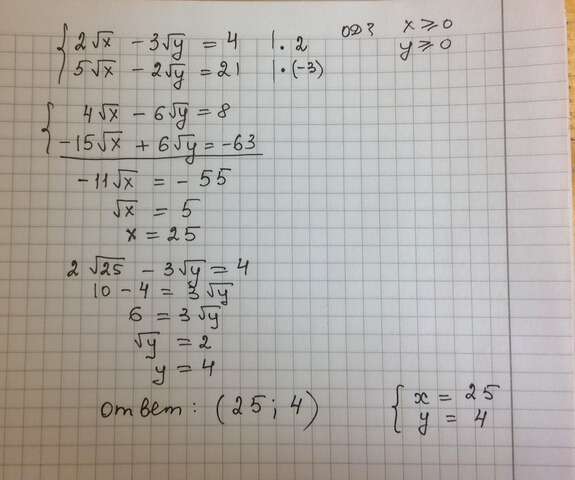 2√x - 3√y = 4 | · 2 ОДЗ x ≥ 0
5√x - 2√y = 21 | · (-3) y ≥ 0
4√x - 6√y = 8
-15√x + 6√y = -63
-11√x = -55
√x = 5
x = 25
2√25 - 3√y = 4
10 - 4 = 3√y
6 = 3√y
√y = 2
y = 4
ответ: (25; 4) x = 25
y = 4